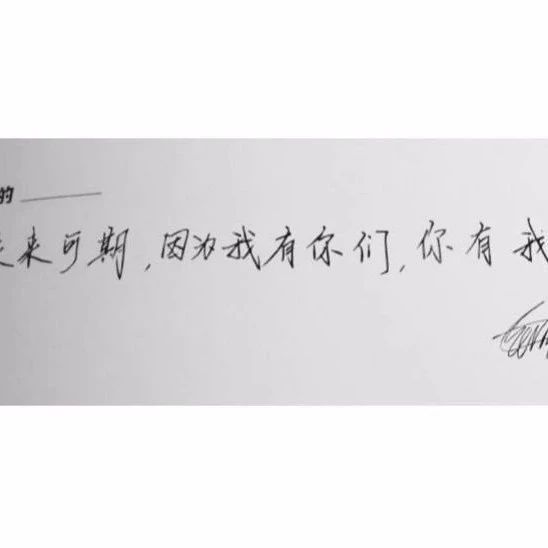 的
来可期,因为我有你们,你有我